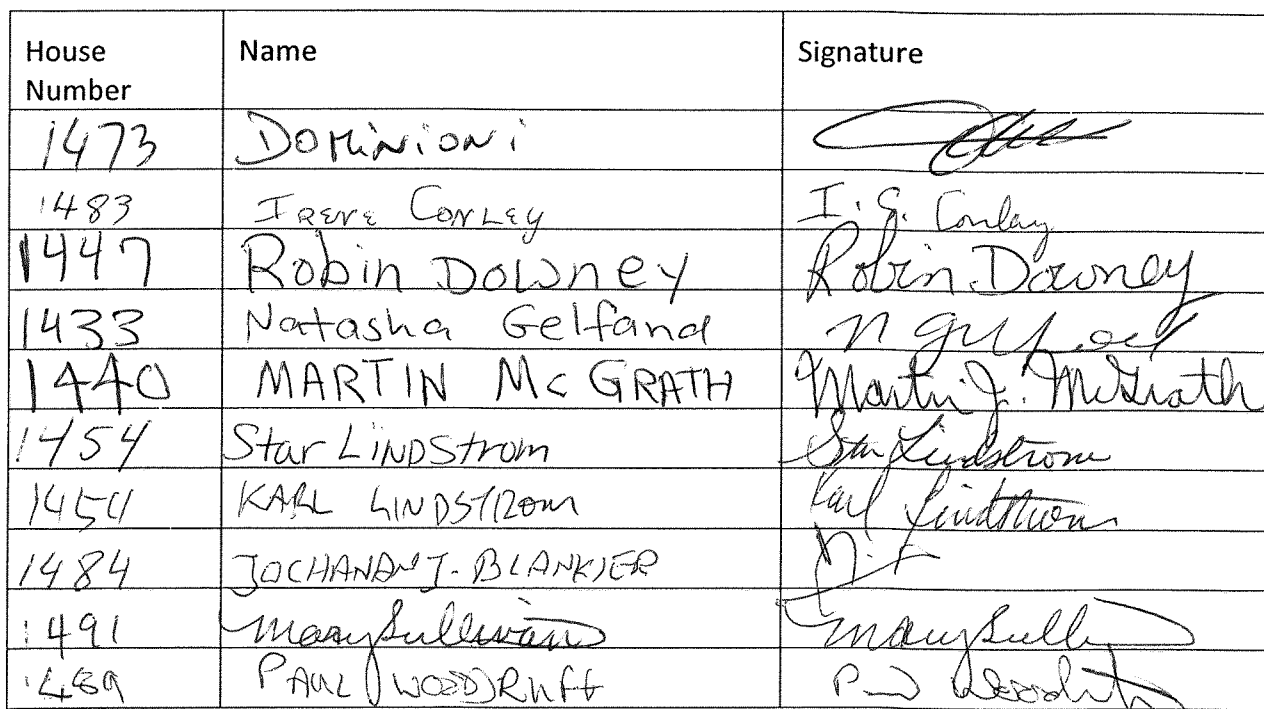 House Number Name Signature
1473 DOMiNiONi
1483 IRENE CONLEY I. G. Conley
1447 Robin DOWNEY Robin Downey
1433 Natasha Gelfand
1440 MARTIN Mc GRATH Martin J. McGrath
1454 Star LiNDStrom Star Lindstrom
1454 KARL LINDSTROm Karl Lindstrom
1484 JOCHANAN J. BLANKIER
1491 Mary Sullivan Mary Sulli
1489 PAUL WOODRUFF